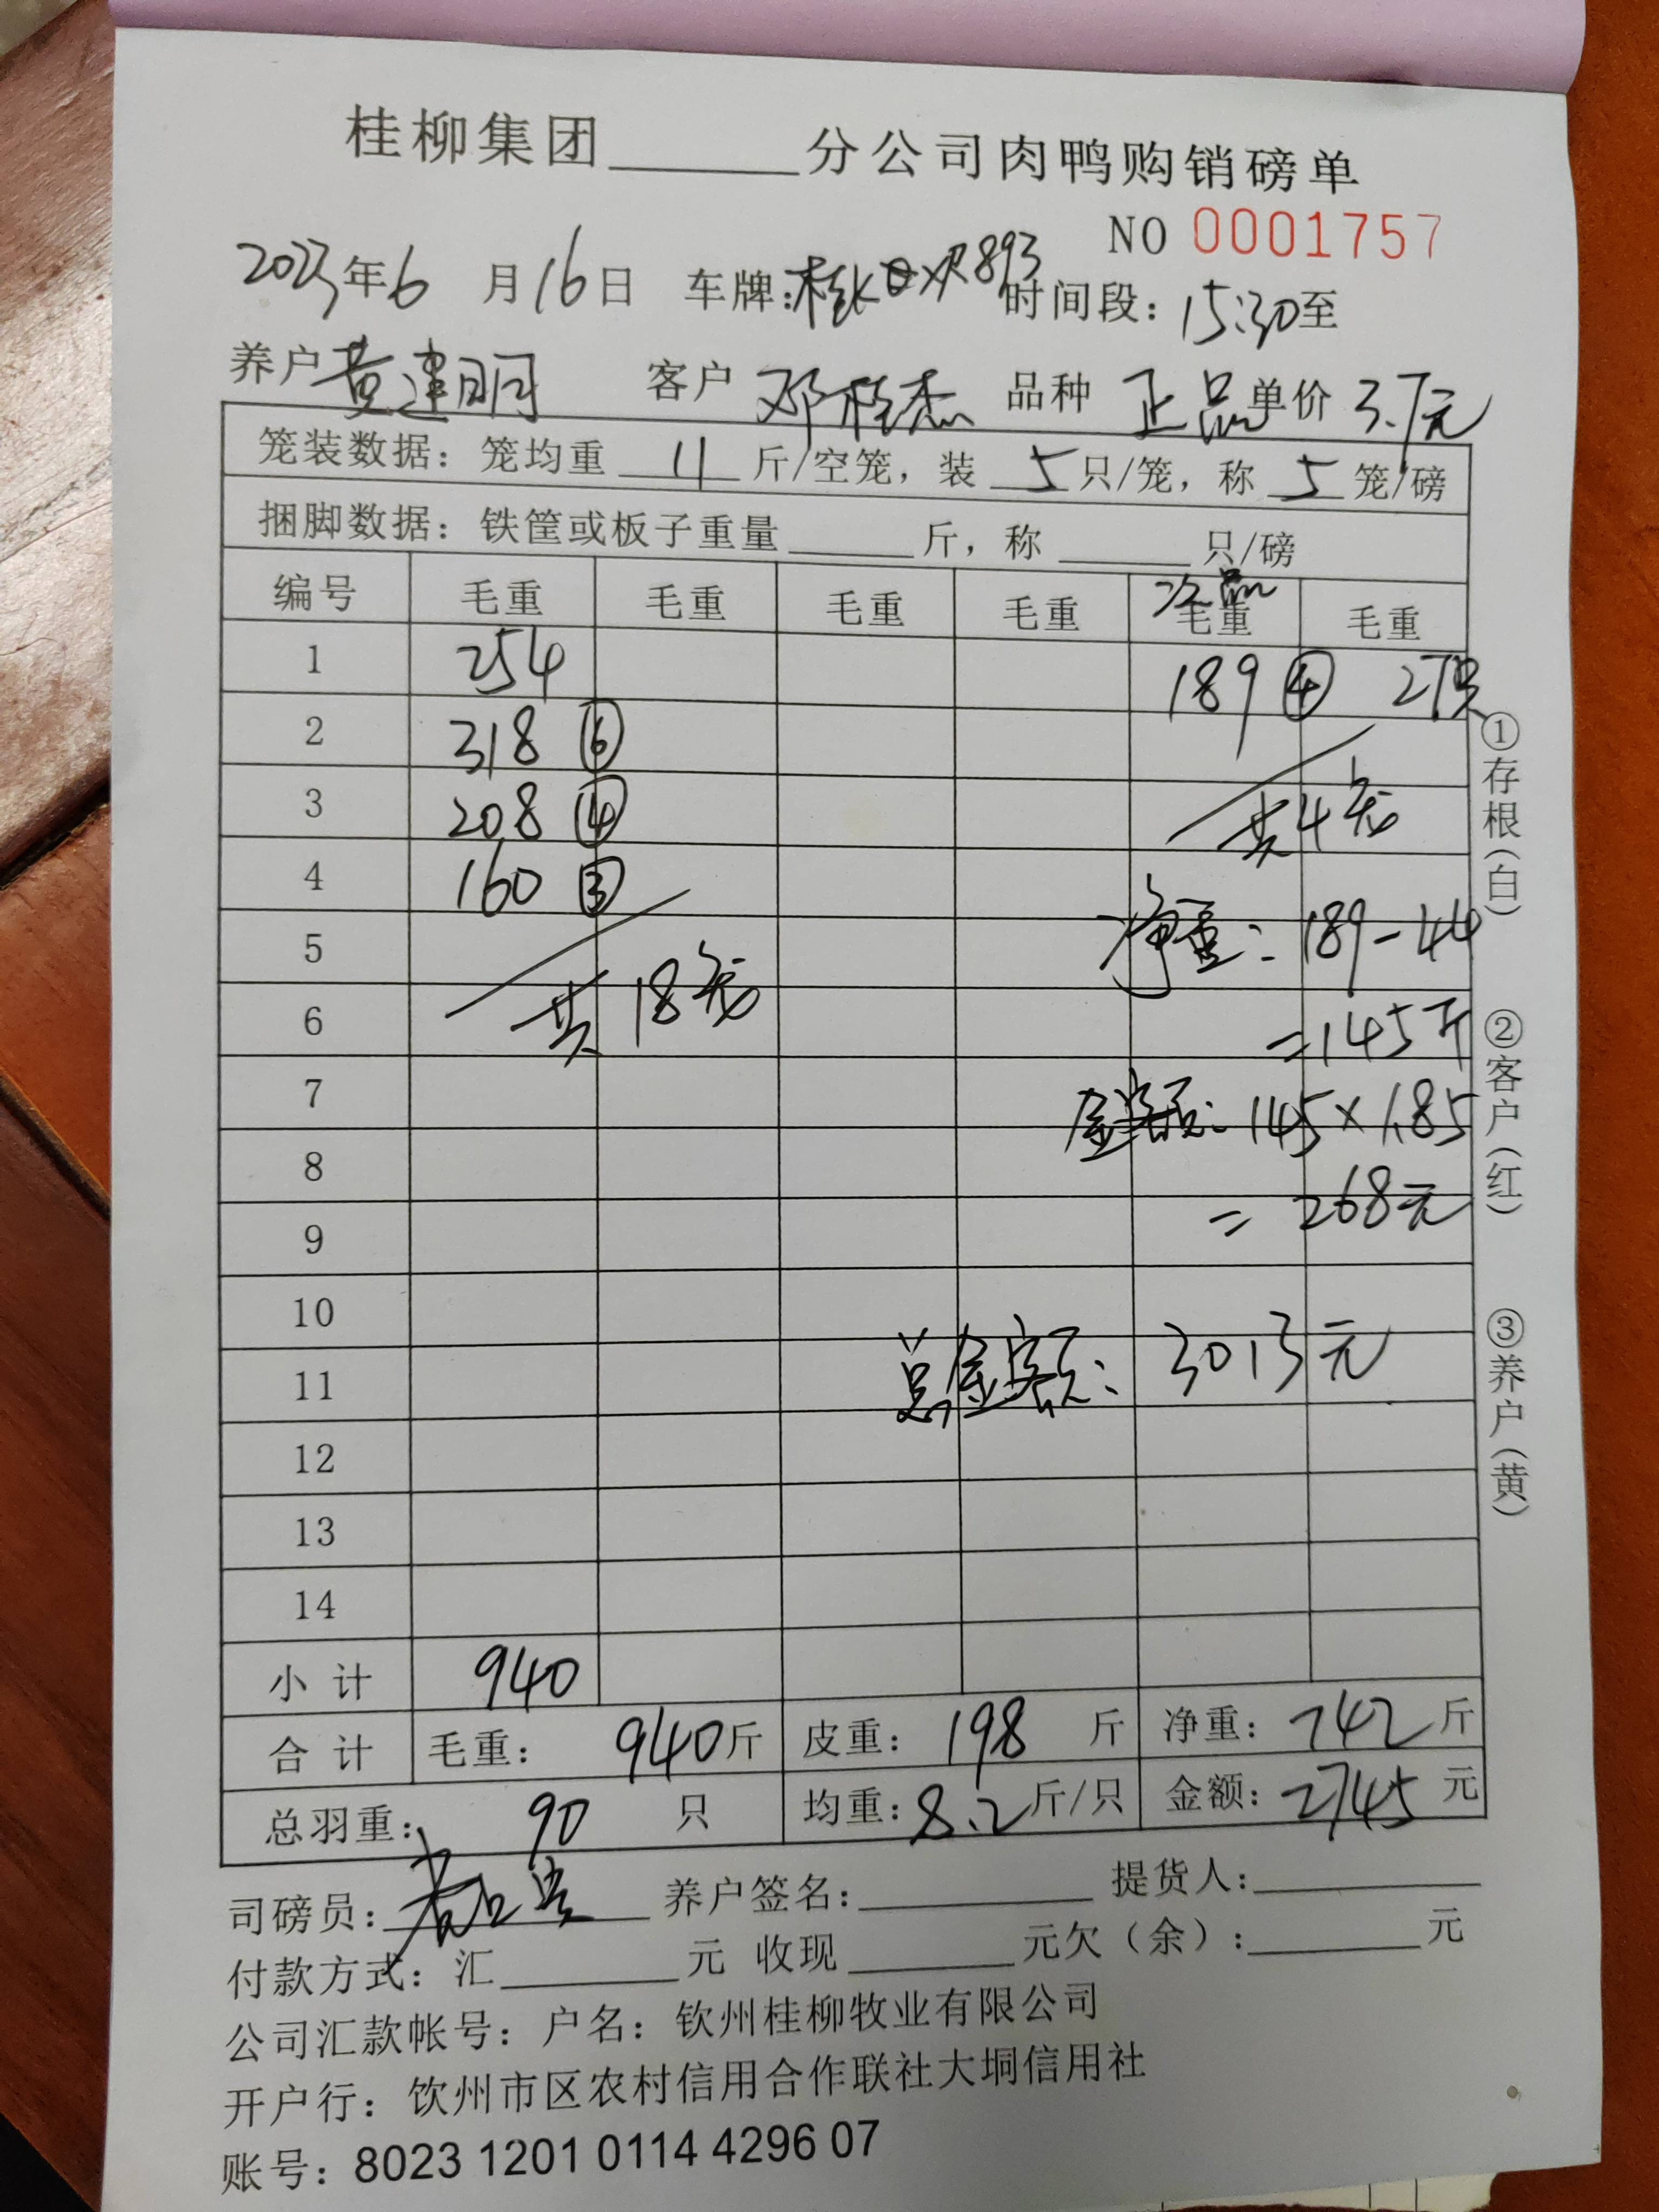 桂柳集团______分公司肉鸭购销磅单
NO 0001757
2023年6月16日 车牌:桂 893 时间段：15:30至
养户 黄建明 客户 邓桂杰 品种 正品 单价 3.7元
笼装数据：笼均重 11 斤/空笼，装 5 只/笼，称 5 笼/磅
捆脚数据：铁筐或板子重量______斤，称______只/磅
次品
编号 毛重 毛重 毛重 毛重 毛重 毛重
1 254 189 ④ 27只
2 318 ⑥
3 208 ④ 共4笼
4 160 ③
5 净重：189-44
6 共18笼 =145斤
7 金额：145×1.85
8
9 =268元
10
11 总金额：3013元
12
13
14
小计 940
合计 毛重：940斤 皮重：198斤 净重：742斤
总羽重：90只 均重：8.2斤/只 金额：2745元
司磅员： 养户签名：______ 提货人：______
付款方式：汇______元 收现______元欠（余）：______元
公司汇款帐号：户名：钦州桂柳牧业有限公司
开户行：钦州市区农村信用合作联社大垌信用社
账号：8023 1201 0114 4296 07
①存根（白）
②客户（红）
③养户（黄）